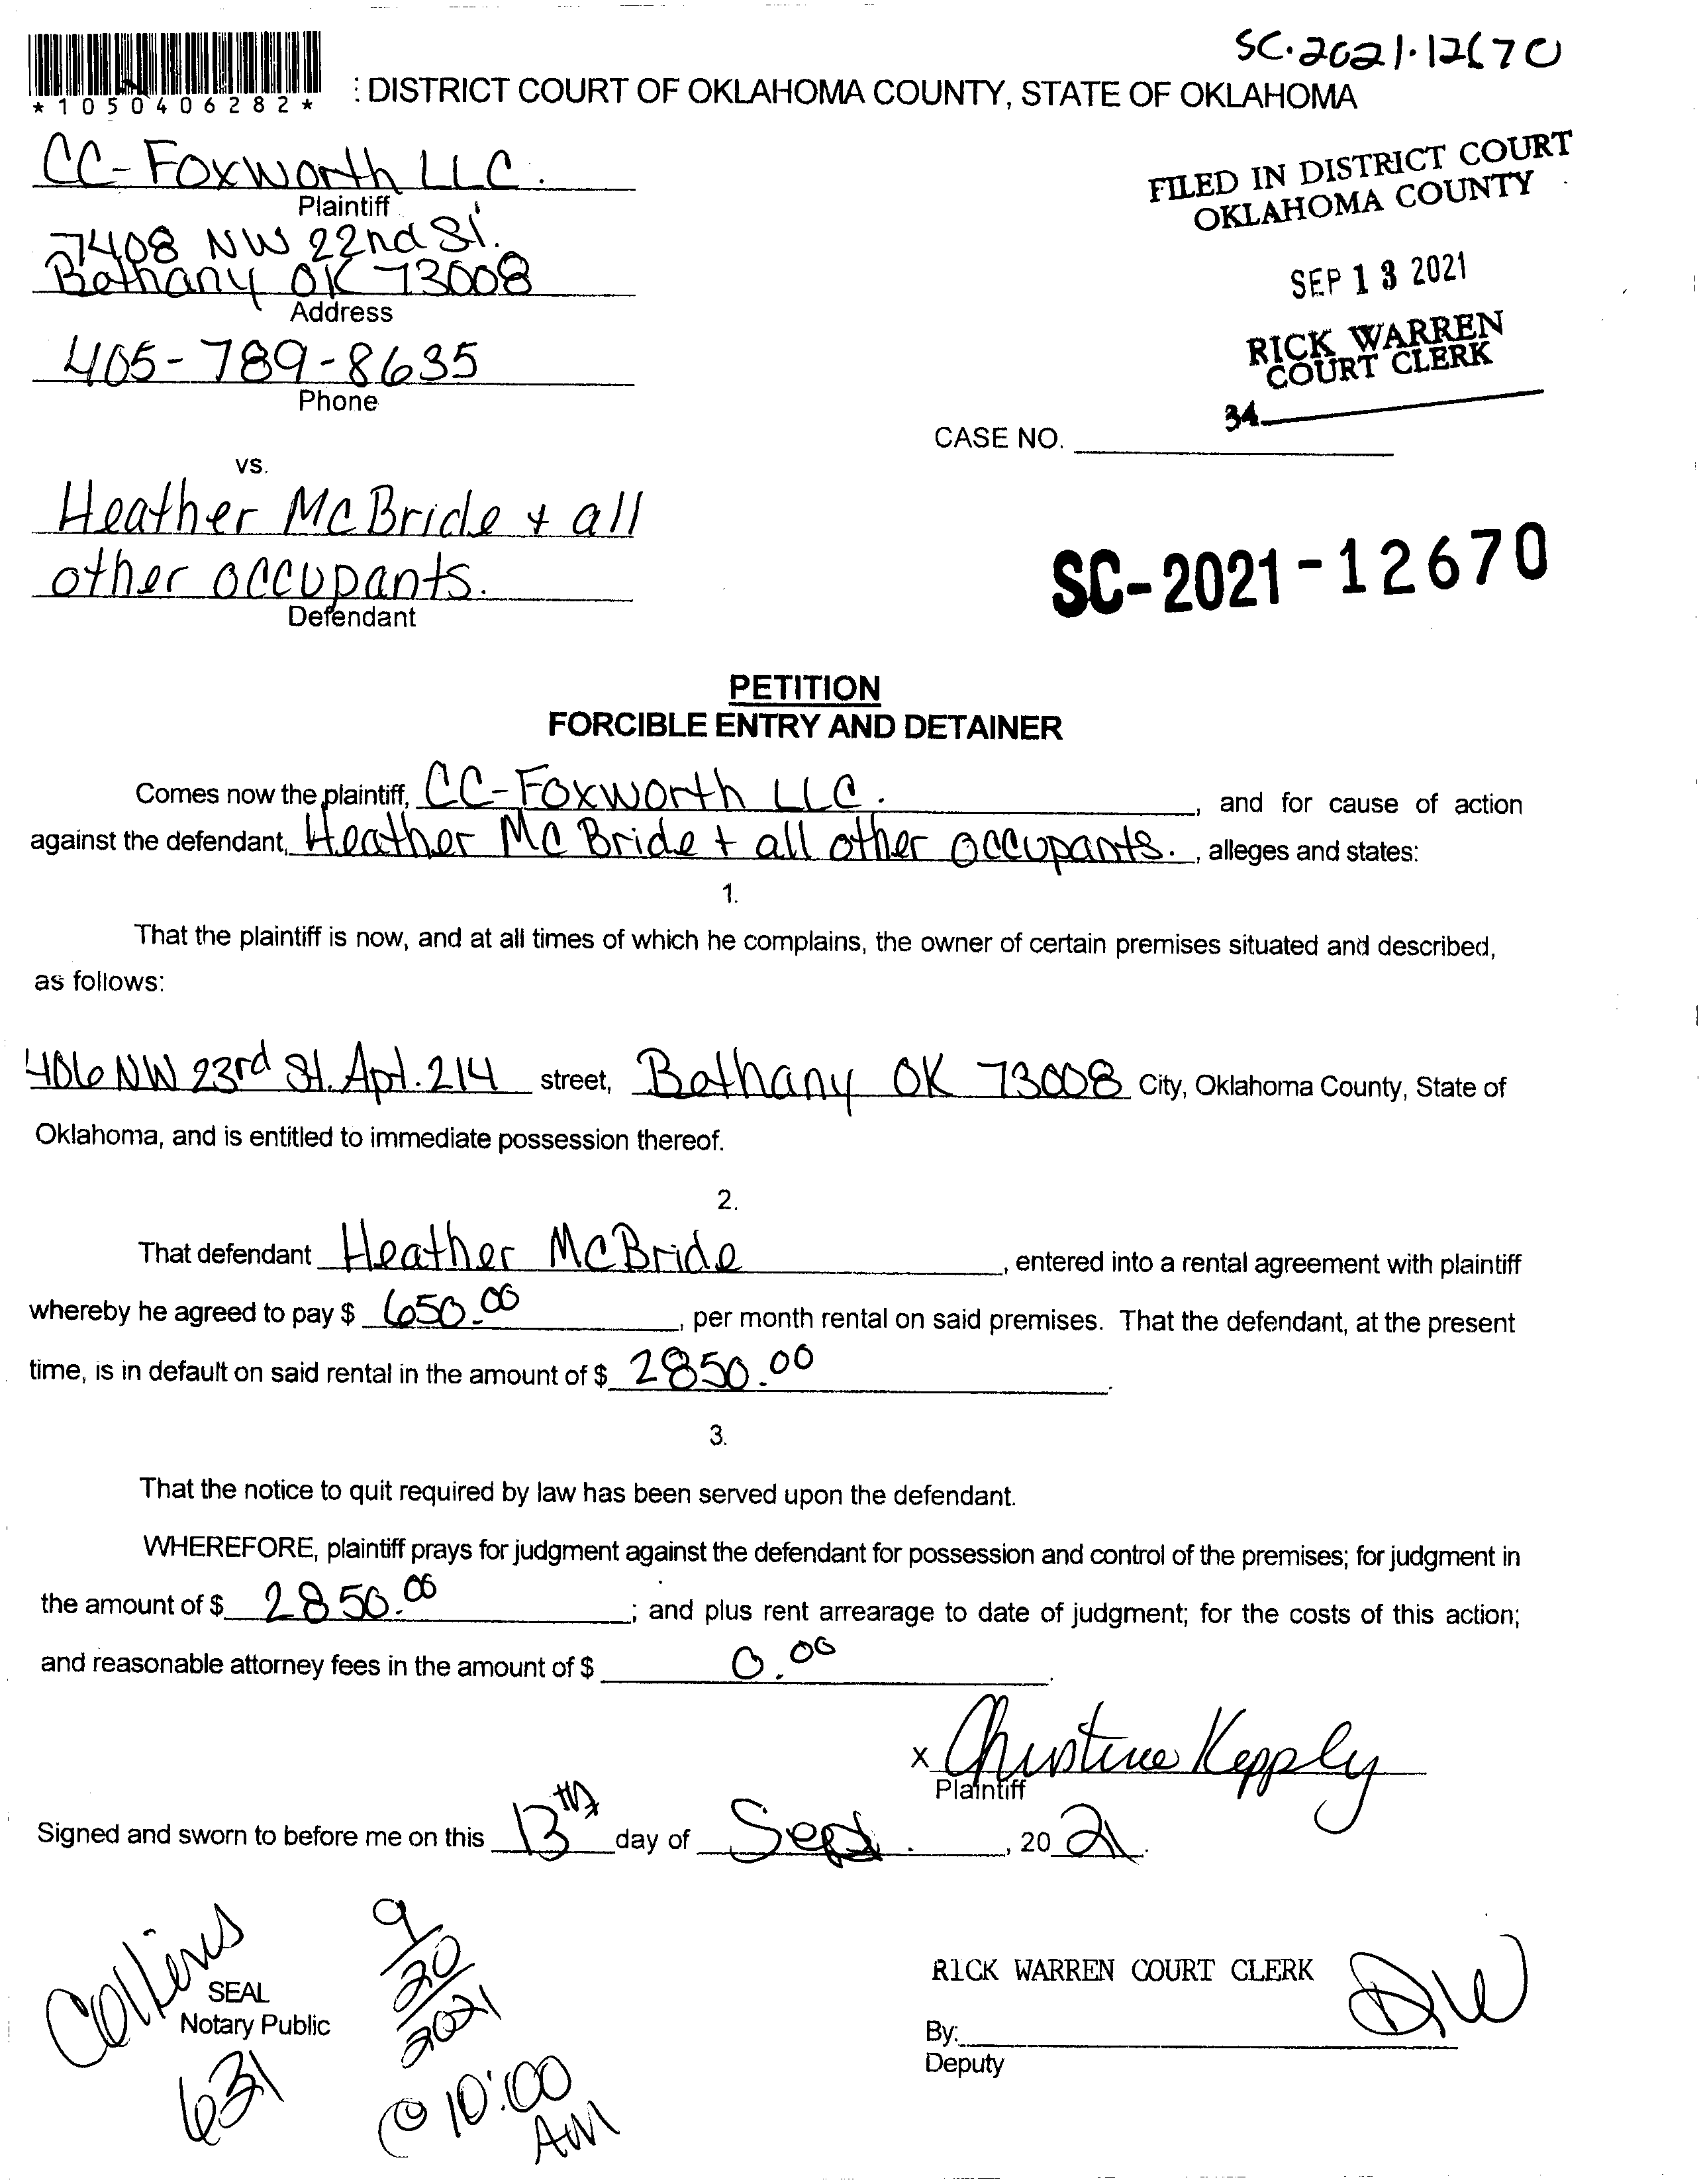 SC-2021-12670
*1050406282*
: DISTRICT COURT OF OKLAHOMA COUNTY, STATE OF OKLAHOMA
CC-Foxworth LLC.
Plaintiff
7408 NW 22nd St.
Bethany OK 73008
Address
405-789-8635
Phone
FILED IN DISTRICT COURT
OKLAHOMA COUNTY
SEP 13 2021
RICK WARREN
COURT CLERK
34
CASE NO.
vs.
Heather McBride + all
other occupants.
Defendant
SC-2021-12670
PETITION
FORCIBLE ENTRY AND DETAINER
Comes now the plaintiff, CC-Foxworth LLC. , and for cause of action
against the defendant, Heather McBride + all other occupants. , alleges and states:
1.
That the plaintiff is now, and at all times of which he complains, the owner of certain premises situated and described,
as follows:
406 NW 23rd St. Apt. 214 street, Bethany OK 73008 City, Oklahoma County, State of
Oklahoma, and is entitled to immediate possession thereof.
2.
That defendant Heather McBride , entered into a rental agreement with plaintiff
whereby he agreed to pay $ 650.00 , per month rental on said premises. That the defendant, at the present
time, is in default on said rental in the amount of $ 2850.00 .
3.
That the notice to quit required by law has been served upon the defendant.
WHEREFORE, plaintiff prays for judgment against the defendant for possession and control of the premises; for judgment in
the amount of $ 2850.00 ; and plus rent arrearage to date of judgment; for the costs of this action;
and reasonable attorney fees in the amount of $ 0.00 .
x Christine Kepply
Plaintiff
Signed and sworn to before me on this 13th day of Sept. , 20 21.
Collins
SEAL
Notary Public
631
9/20/2021
@ 10:00
AM
RICK WARREN COURT CLERK
By: DW
Deputy